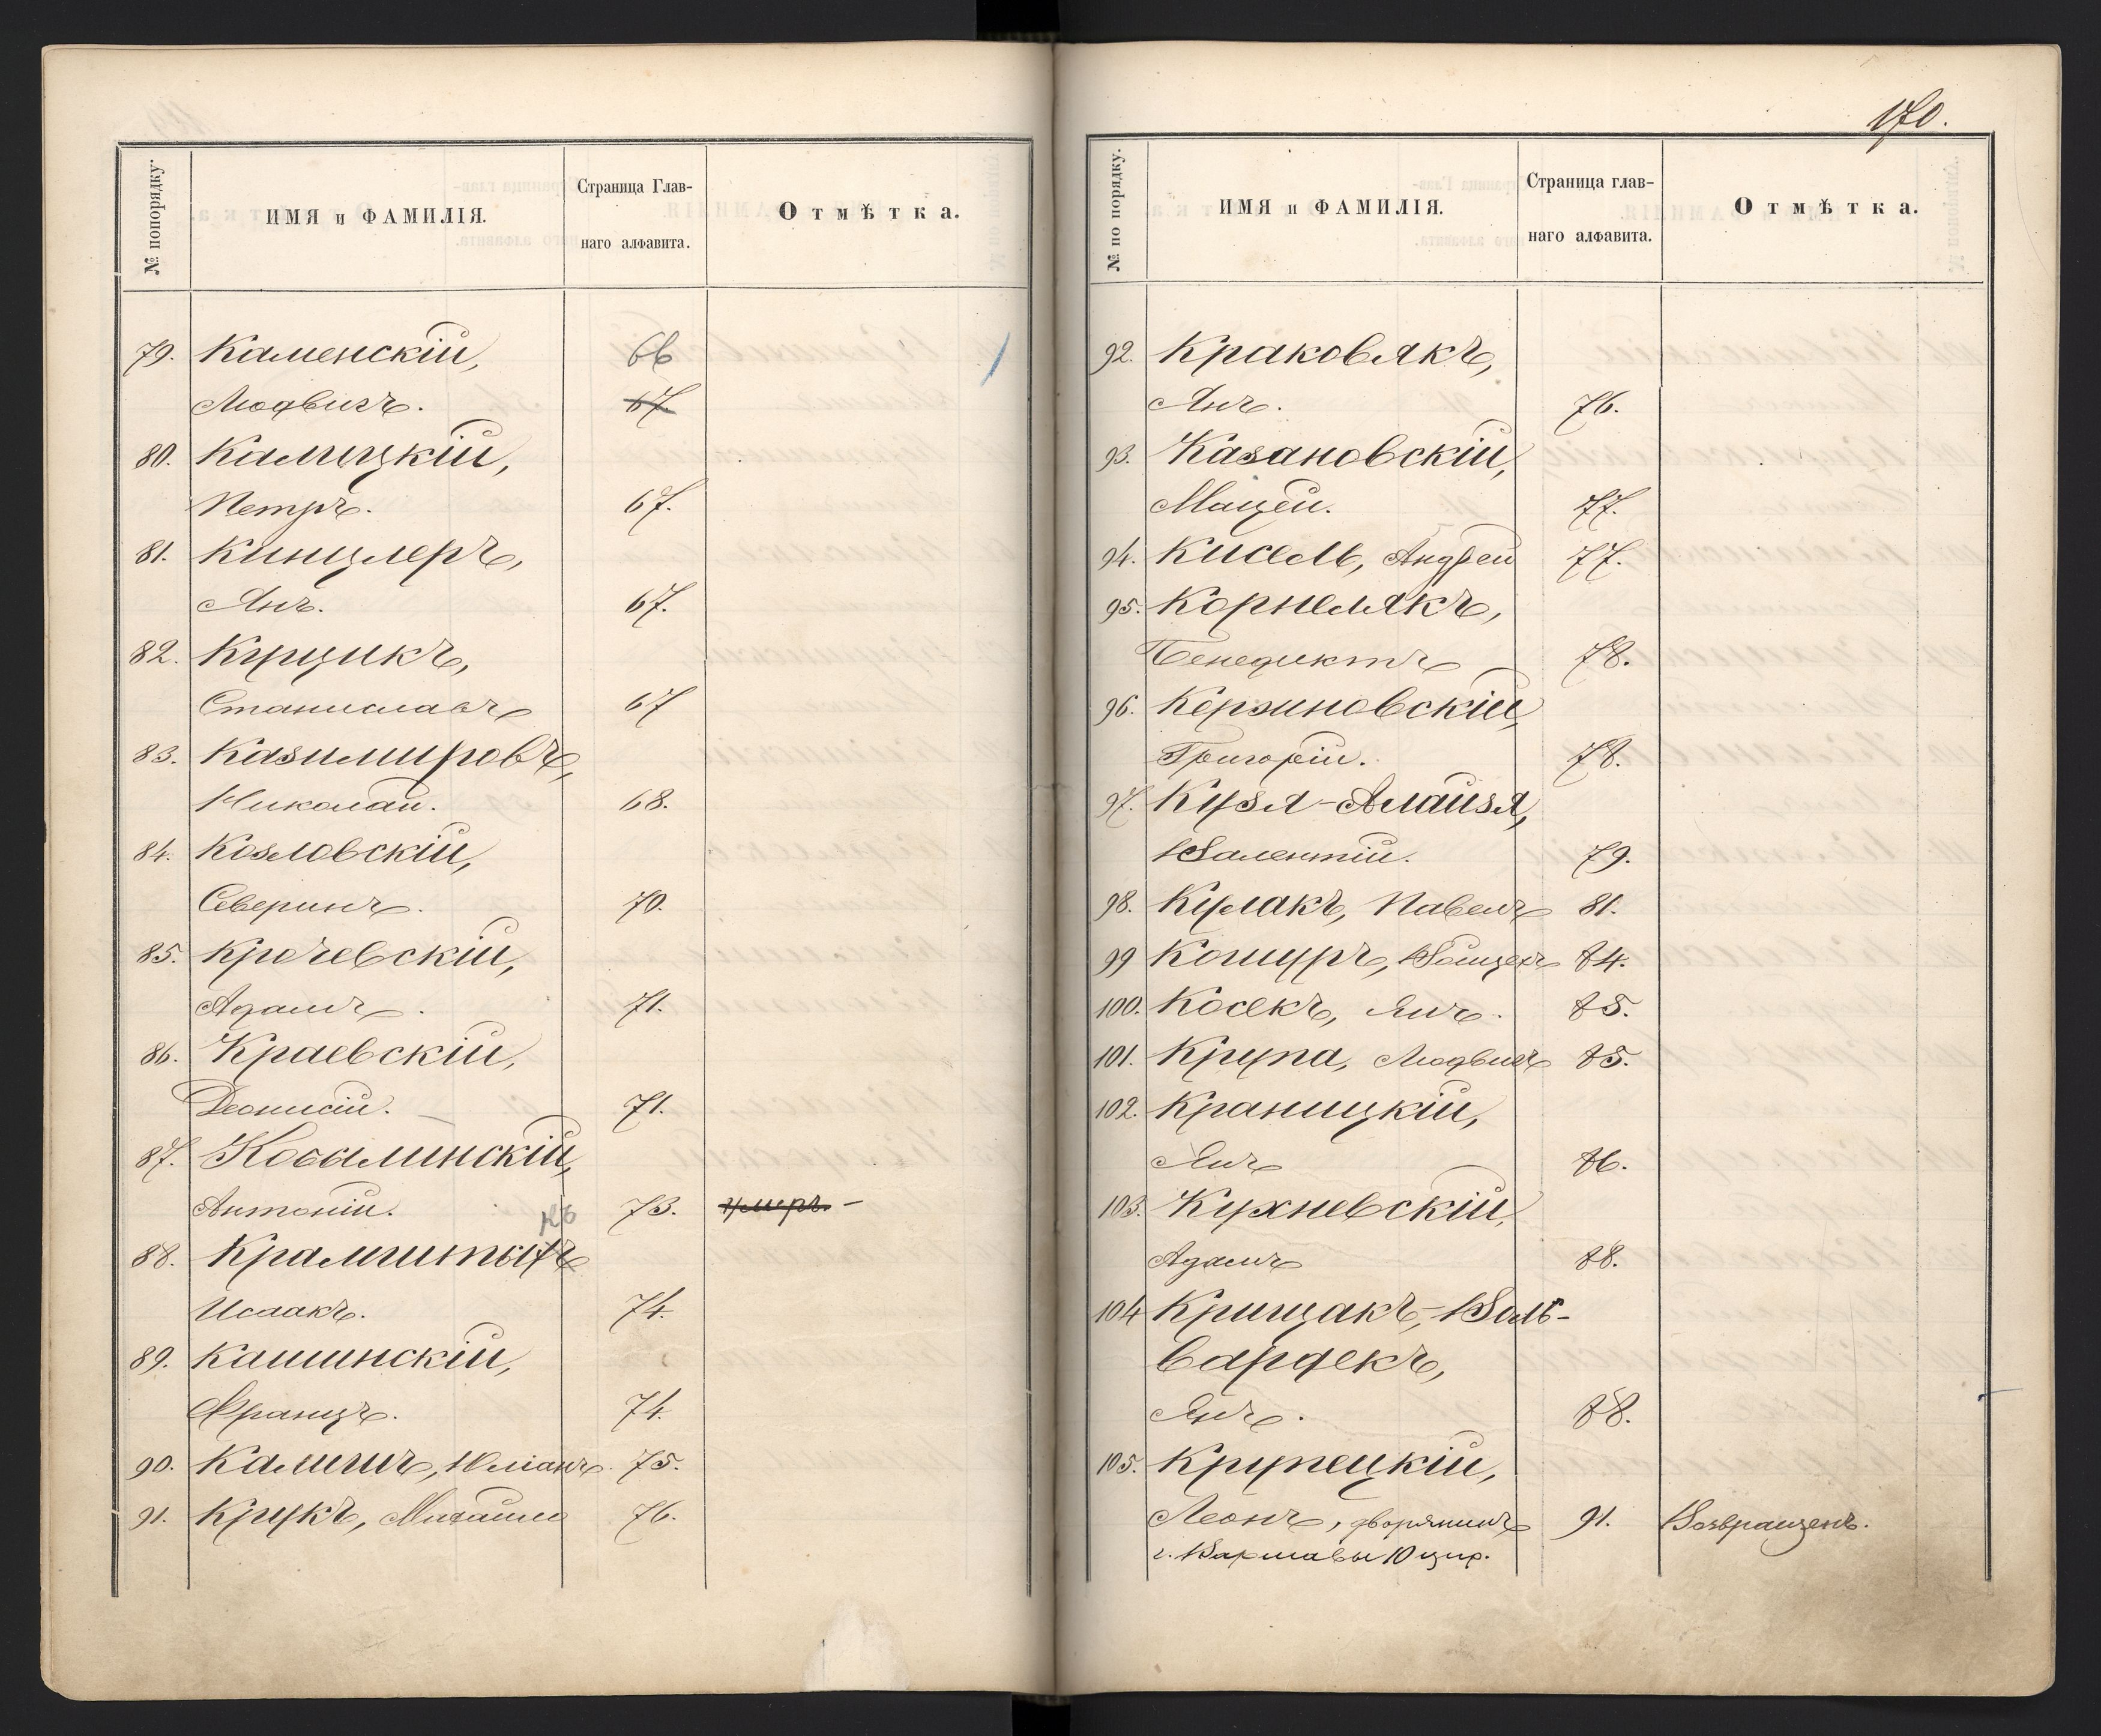 № попорядку.
ИМЯ и ФАМИЛІЯ.
Страница Глав-
наго алфавита.
Отмѣтка.
79. Каменскій, 66
Людвигъ. 67.
80. Калицкій,
Петръ. 67.
81. Кинцлеръ,
Янъ. 67.
82. Куцикъ,
Станиславъ 67
83. Казимировъ,
Николай. 68.
84. Козловскій,
Северинъ. 70.
85. Крочевскій,
Адамъ. 71.
86. Краевскій,
Деонисій. 71.
87. Косалинскій,
Антоній. 73. умеръ. –
къ
88. Крамштыхъ
Исаакъ. 74.
89. Кашинскій,
Францъ. 74.
90. Калишъ, Юліанъ. 75.
91. Крукъ, Михаилъ 76.
170.
№ по порядку.
ИМЯ и ФАМИЛІЯ.
Страница глав-
наго алфавита.
Отмѣтка.
92. Краковякъ,
Янъ. 76.
93. Казановскій,
Мацей. 77.
94. Кисель, Андрей 77.
95. Корнелякъ,
Бенедиктъ 78.
96. Керзиновскій,
Григорій. 78.
97. Кузя-Алайзя,
Валентій. 79.
98. Кулакъ, Павелъ 81.
99 Кошуръ, Войцехъ 84.
100. Косекъ, Янъ. 85.
101. Крупа, Людвигъ 85.
102. Краницкій,
Янъ 86.
103. Кухневскій,
Адамъ 88.
104 Крищакъ,-Валь-
вардекъ,
Янъ. 88.
105. Крупецкій,
Леонъ, дворянинъ 91. Возвращенъ.
г. Варшавы 10 цир.